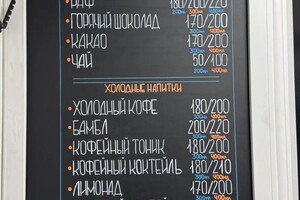 РАФ 180/200/220
200мл 300мл 400мл
ГОРЯЧИЙ ШОКОЛАД 170/200
300мл 400мл
КАКАО 170/200
300мл 400мл
ЧАЙ 50/100
200мл 400мл
ХОЛОДНЫЕ НАПИТКИ
ХОЛОДНЫЙ КОФЕ 180/200
300мл 400мл
БАМБЛ 200/220
300мл 400мл
КОФЕЙНЫЙ ТОНИК 180/200
300мл 400мл
КОФЕЙНЫЙ КОКТЕЙЛЬ 180/210
300мл 400мл
ЛИМОНАД 170/200
300мл 400мл